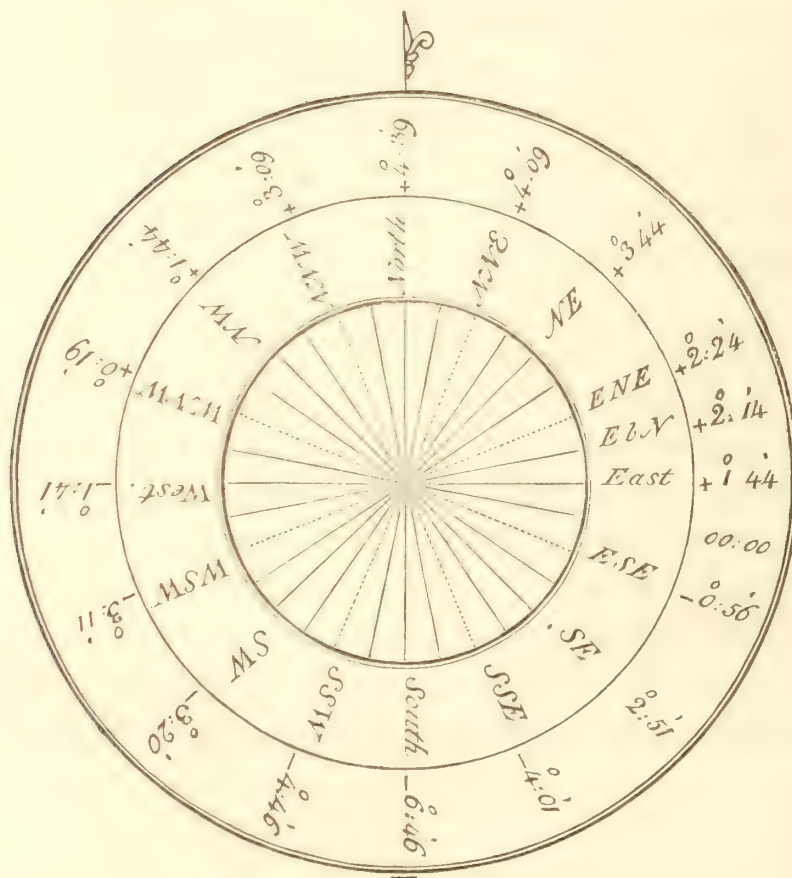 North
NNE
+4°:09'
NE
+3° 44'
ENE
+2°:24'
EbN
+2°:14'
East
+1° 44'
00:00
ESE
-0°:56'
SE
2°:51'
SSE
-4°:01'
South
-6°:46'
SSW
-4°:46'
SW
-3°:20'
WSW
-3°:11'
West.
-1°:41'
WNW
+0°:19'
NW
+1°:44'
NNW
+3°:09'